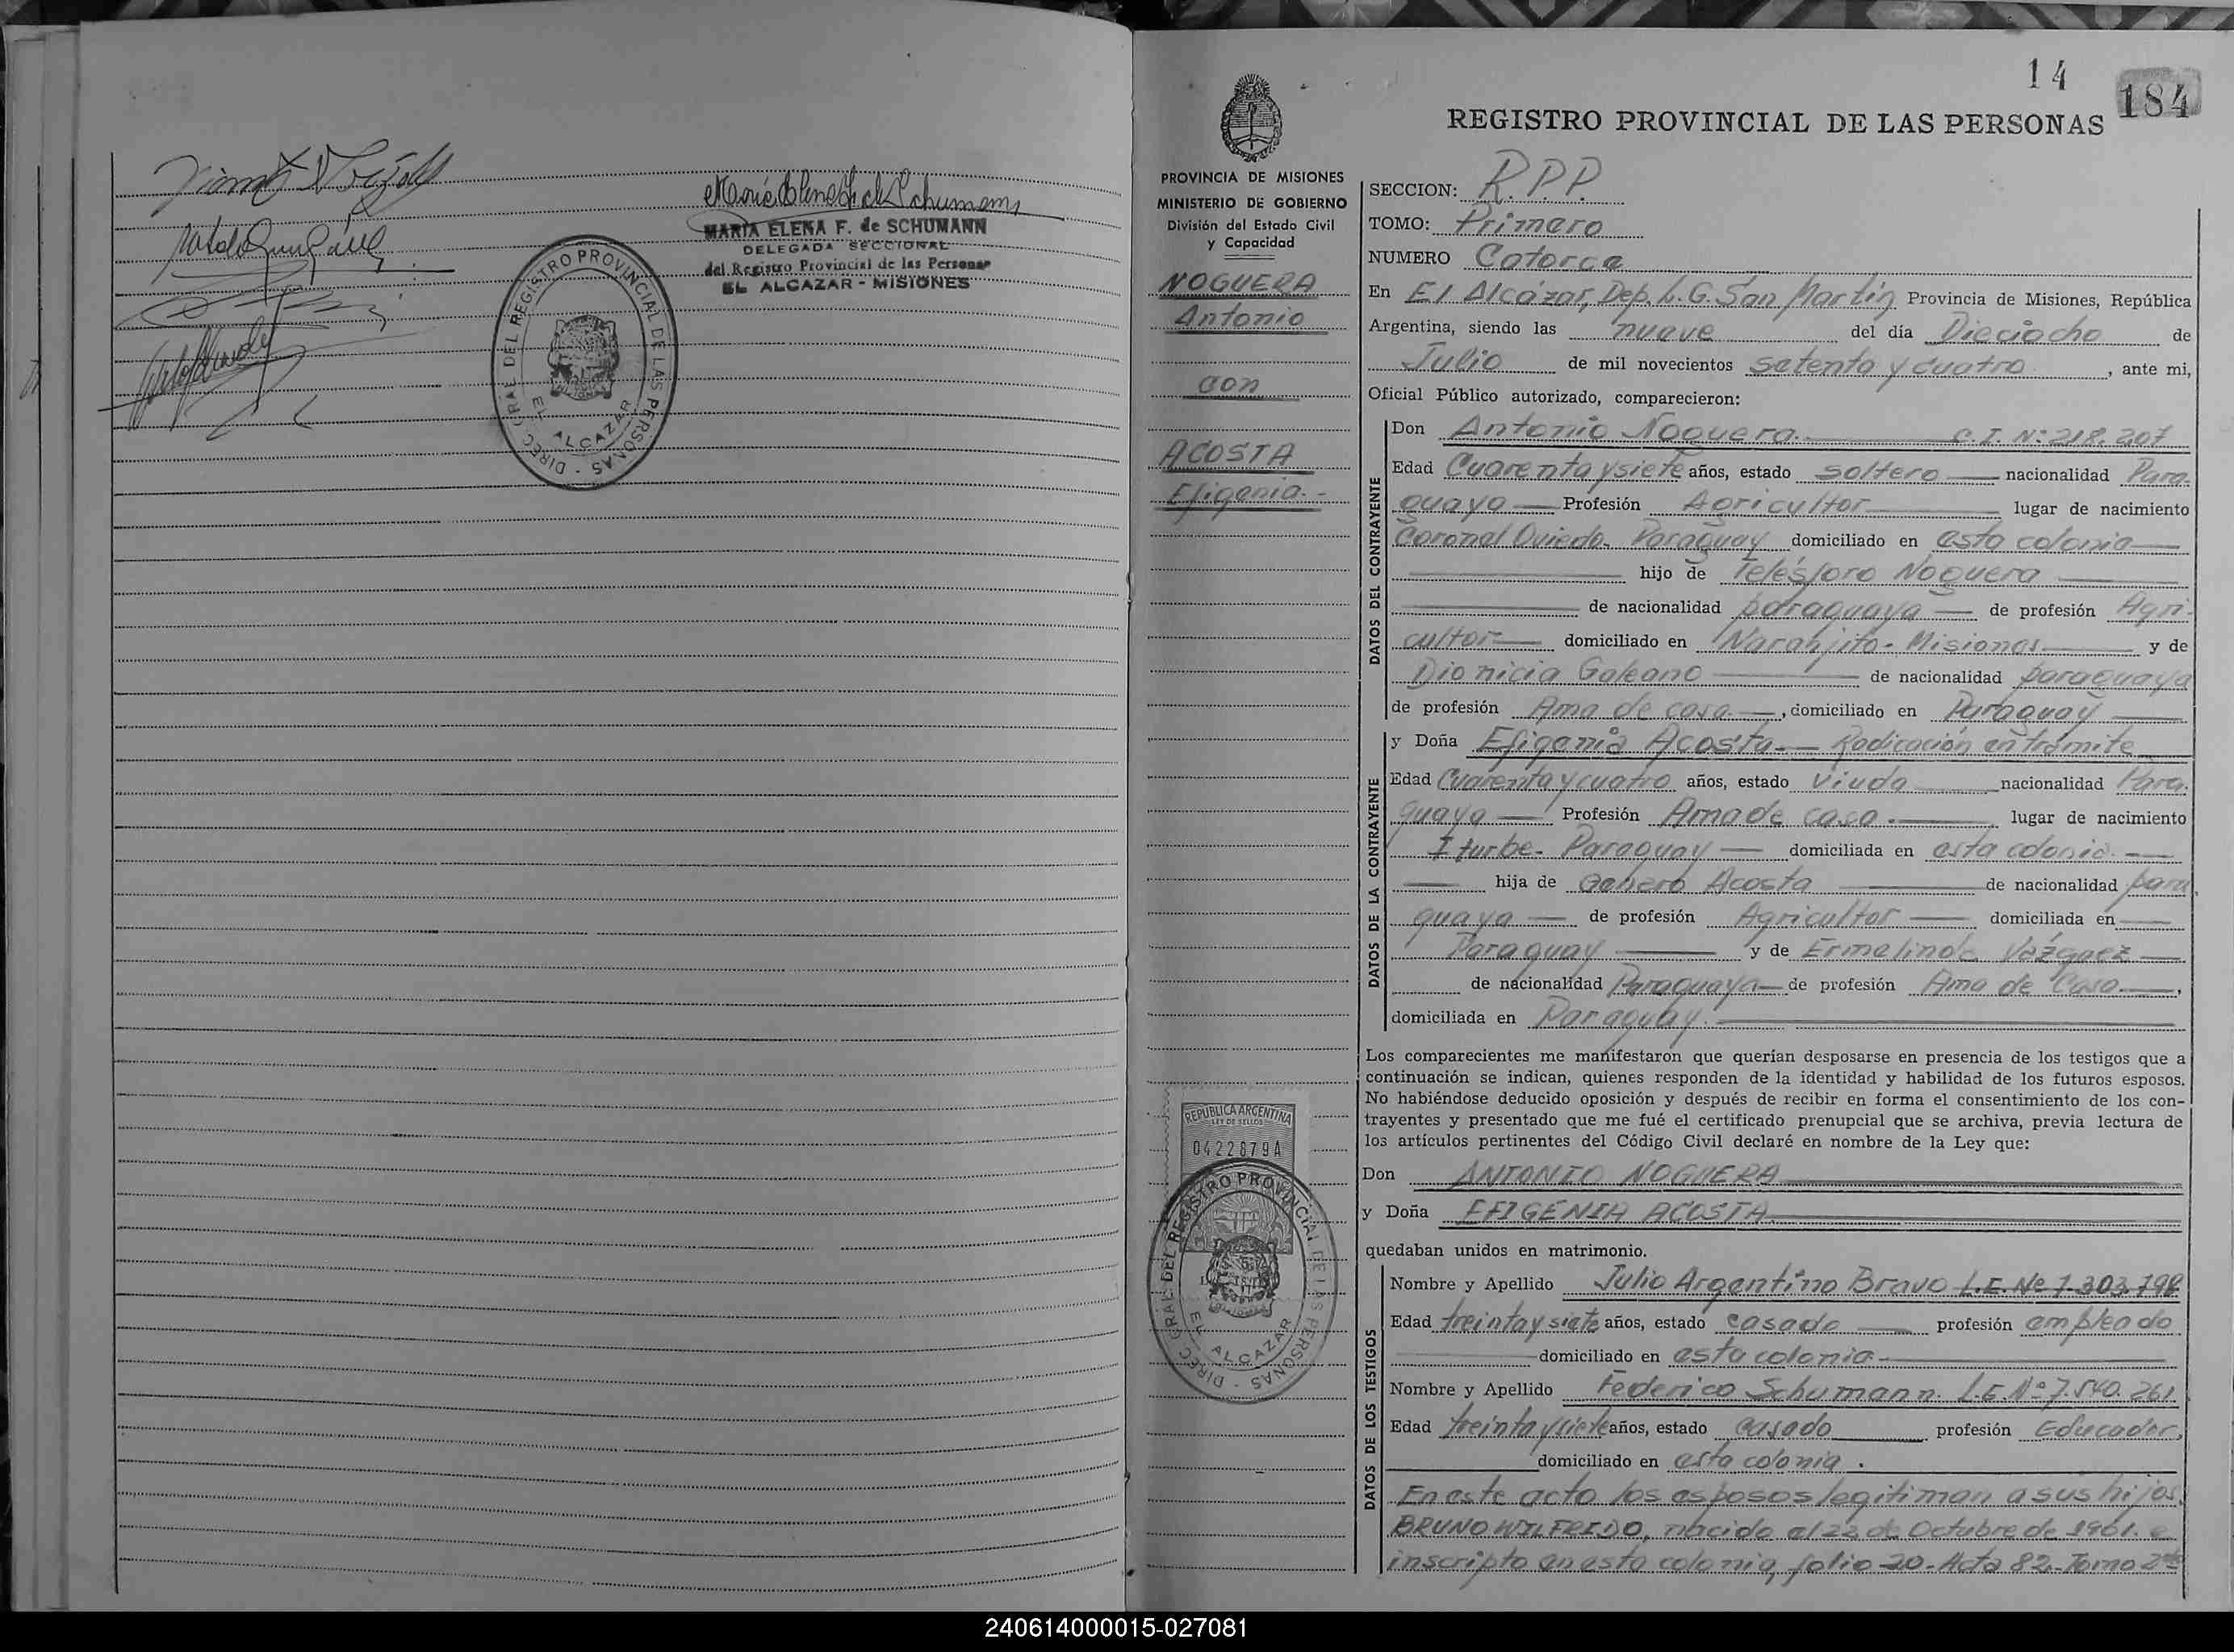 María Elena F. de Schumann
MARIA ELENA F. de SCHUMANN
DELEGADA SECCIONAL
del Registro Provincial de las Personas
EL ALCAZAR - MISIONES
DIREC. GRAL DEL REGISTRO PROVINCIAL DE LAS PERSONAS -
EL ALCAZAR
14
184
REGISTRO PROVINCIAL DE LAS PERSONAS
PROVINCIA DE MISIONES
MINISTERIO DE GOBIERNO
División del Estado Civil
y Capacidad
NOGUERA
Antonio
con
ACOSTA
Efigenia.-
REPUBLICA ARGENTINA
LEY DE SELLOS
0422879A
DIREC. GRAL DEL REGISTRO PROVINCIAL DE LAS PERSONAS -
EL ALCAZAR
SECCION: R.P.P.
TOMO: Primero
NUMERO Catorce
En El Alcázar, Dep. L.G. San Martín Provincia de Misiones, República
Argentina, siendo las nueve del día Dieciocho de
Julio de mil novecientos setenta y cuatro, ante mi,
Oficial Público autorizado, comparecieron:
DATOS DEL CONTRAYENTE
Don Antonio Noguera. C.I. Nº 218.207
Edad Cuarenta y siete años, estado soltero nacionalidad Para-
guaya Profesión Agricultor lugar de nacimiento
Coronel Oviedo- Paraguay domiciliado en esta colonia
hijo de Telésforo Noguera
de nacionalidad paraguaya de profesión Agri-
cultor domiciliado en Naranjito- Misiones y de
Dionicia Galeano de nacionalidad paraguaya
de profesión Ama de casa. , domiciliado en Paraguay
DATOS DE LA CONTRAYENTE
y Doña Efigenia Acosta.- Radicación en trámite
Edad Cuarenta y cuatro años, estado viuda nacionalidad Para-
guaya Profesión Ama de casa. lugar de nacimiento
Iturbe- Paraguay domiciliada en esta colonia.
hija de Acosta de nacionalidad para
guaya de profesión Agricultor domiciliada en
Paraguay y de Ermelinda Vázquez
de nacionalidad Paraguaya de profesión Ama de Casa ,
domiciliada en Paraguay.
Los comparecientes me manifestaron que querían desposarse en presencia de los testigos que a
continuación se indican, quienes responden de la identidad y habilidad de los futuros esposos.
No habiéndose deducido oposición y después de recibir en forma el consentimiento de los con-
trayentes y presentado que me fué el certificado prenupcial que se archiva, previa lectura de
los artículos pertinentes del Código Civil declaré en nombre de la Ley que:
Don ANTONIO NOGUERA
y Doña EFIGENIA ACOSTA.
quedaban unidos en matrimonio.
DATOS DE LOS TESTIGOS
Nombre y Apellido Julio Argentino Bravo L.E. Nº 7.303.798
Edad treinta y siete años, estado casado profesión empleado
domiciliado en esta colonia
Nombre y Apellido Federico Schumann. L.E. Nº 7.540.261.
Edad treinta y siete años, estado casado profesión Educador,
domiciliado en esta colonia.
En este acto los esposos legitiman a sus hijos.
BRUNO WILFRIDO, nacido el 22 de Octubre de 1961. e
inscripto en esta colonia, folio 20- Acta 82- Tomo
240614000015-027081